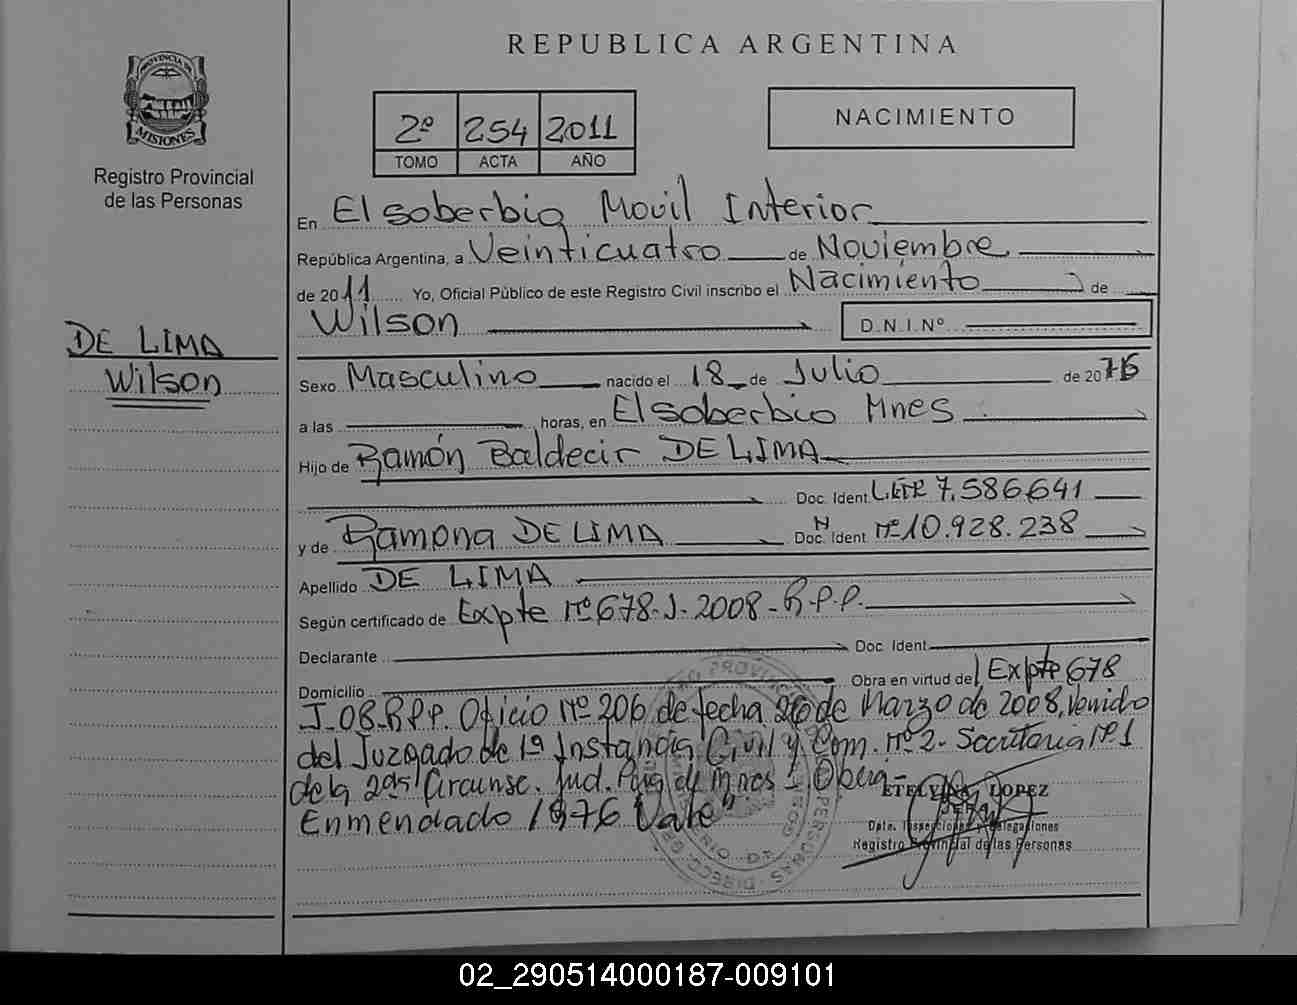 REPUBLICA ARGENTINA
PROVINCIA DE
MISIONES
Registro Provincial
de las Personas
2º 254 2011
TOMO ACTA AÑO
NACIMIENTO
En El soberbio Movil Interior
República Argentina, a Veinticuatro de Noviembre
de 2011 Yo, Oficial Público de este Registro Civil inscribo el Nacimiento de
Wilson D.N.I.Nº
DE LIMA
Wilson
Sexo Masculino nacido el 18 de Julio de 2076
a las horas, en El soberbio Mnes
Hijo de Ramón Baldecir DE LIMA
Doc. Ident 7.586.641
y de Ramona DE LIMA Doc. Ident Nº 10.928.238
Apellido DE LIMA
Según certificado de Expte Nº 678-J-2008-R-P-P.
Declarante Doc. Ident
Domicilio Obra en virtud del Expte 678
J-08-R.P.P. Oficio Nº 206 de fecha 26 de Marzo de 2008, Venido
del Juzgado de 1ª Instancia Civil y Com. Nº 2- Secretaria Nº 1
de la 2da Circunsc. Jud. de Mnes Obera-
Enmendado 1976 Vale"
ETELVINA LOPEZ
JEFA
Dpto. Inspecciones y Delegaciones
Registro Provincial de las Personas
02_290514000187-009101